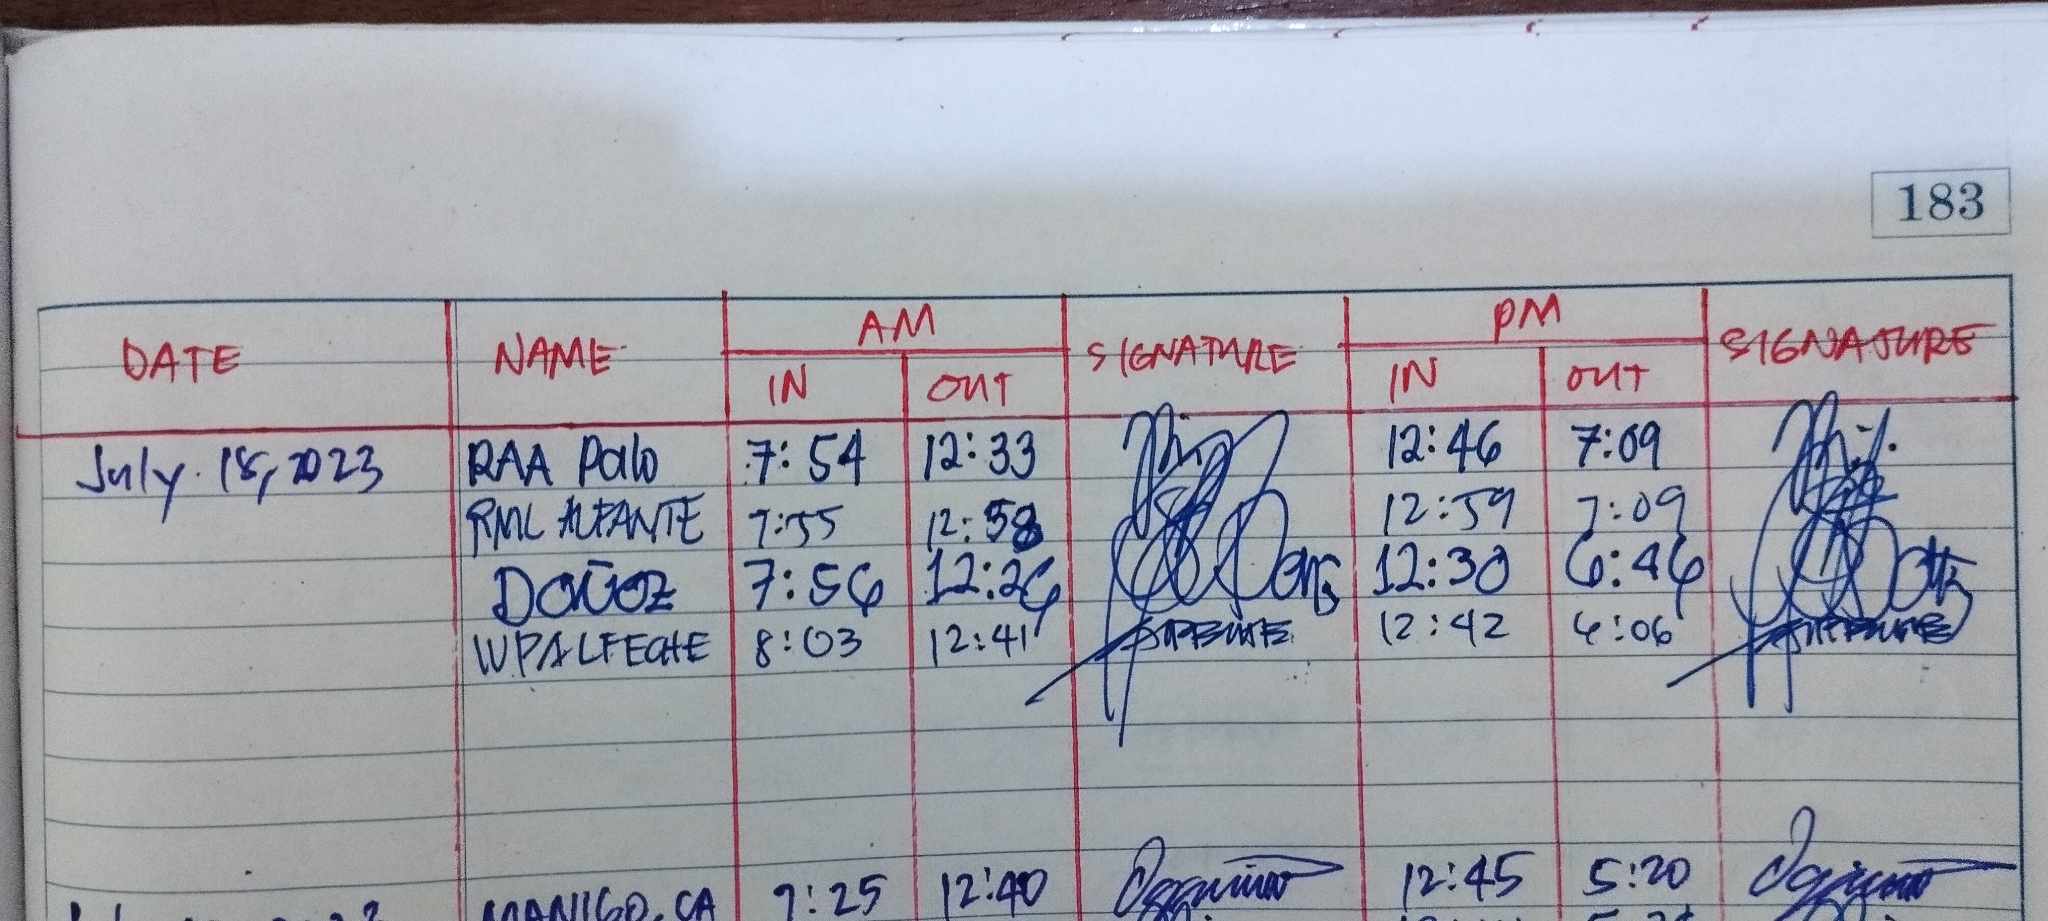 183
DATE NAME AM SIGNATURE PM SIGNATURE
IN OUT IN OUT
July. 18, 2023 RAA Palo 7:54 12:33 12:46 7:09
RML ALFANTE 7:55 12:58 12:59 7:09
7:56 12:26 12:30 6:46
WPALFECHE 8:03 12:41 12:42 6:06
MANIGO, CA 9:25 12:40 12:45 5:20